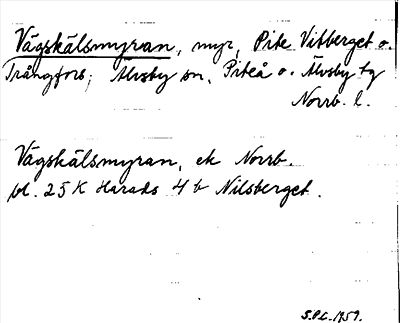 Vågskälsmyran, myr, Pite Vitberget o.
Trångfors; Älvsby sn, Piteå o. Älvsby tg
Norrb. l.
Vågskälsmyran, ek Norrb.
bl. 25 K Harads 4 b Nilsberget.
S.P.L. 1959.